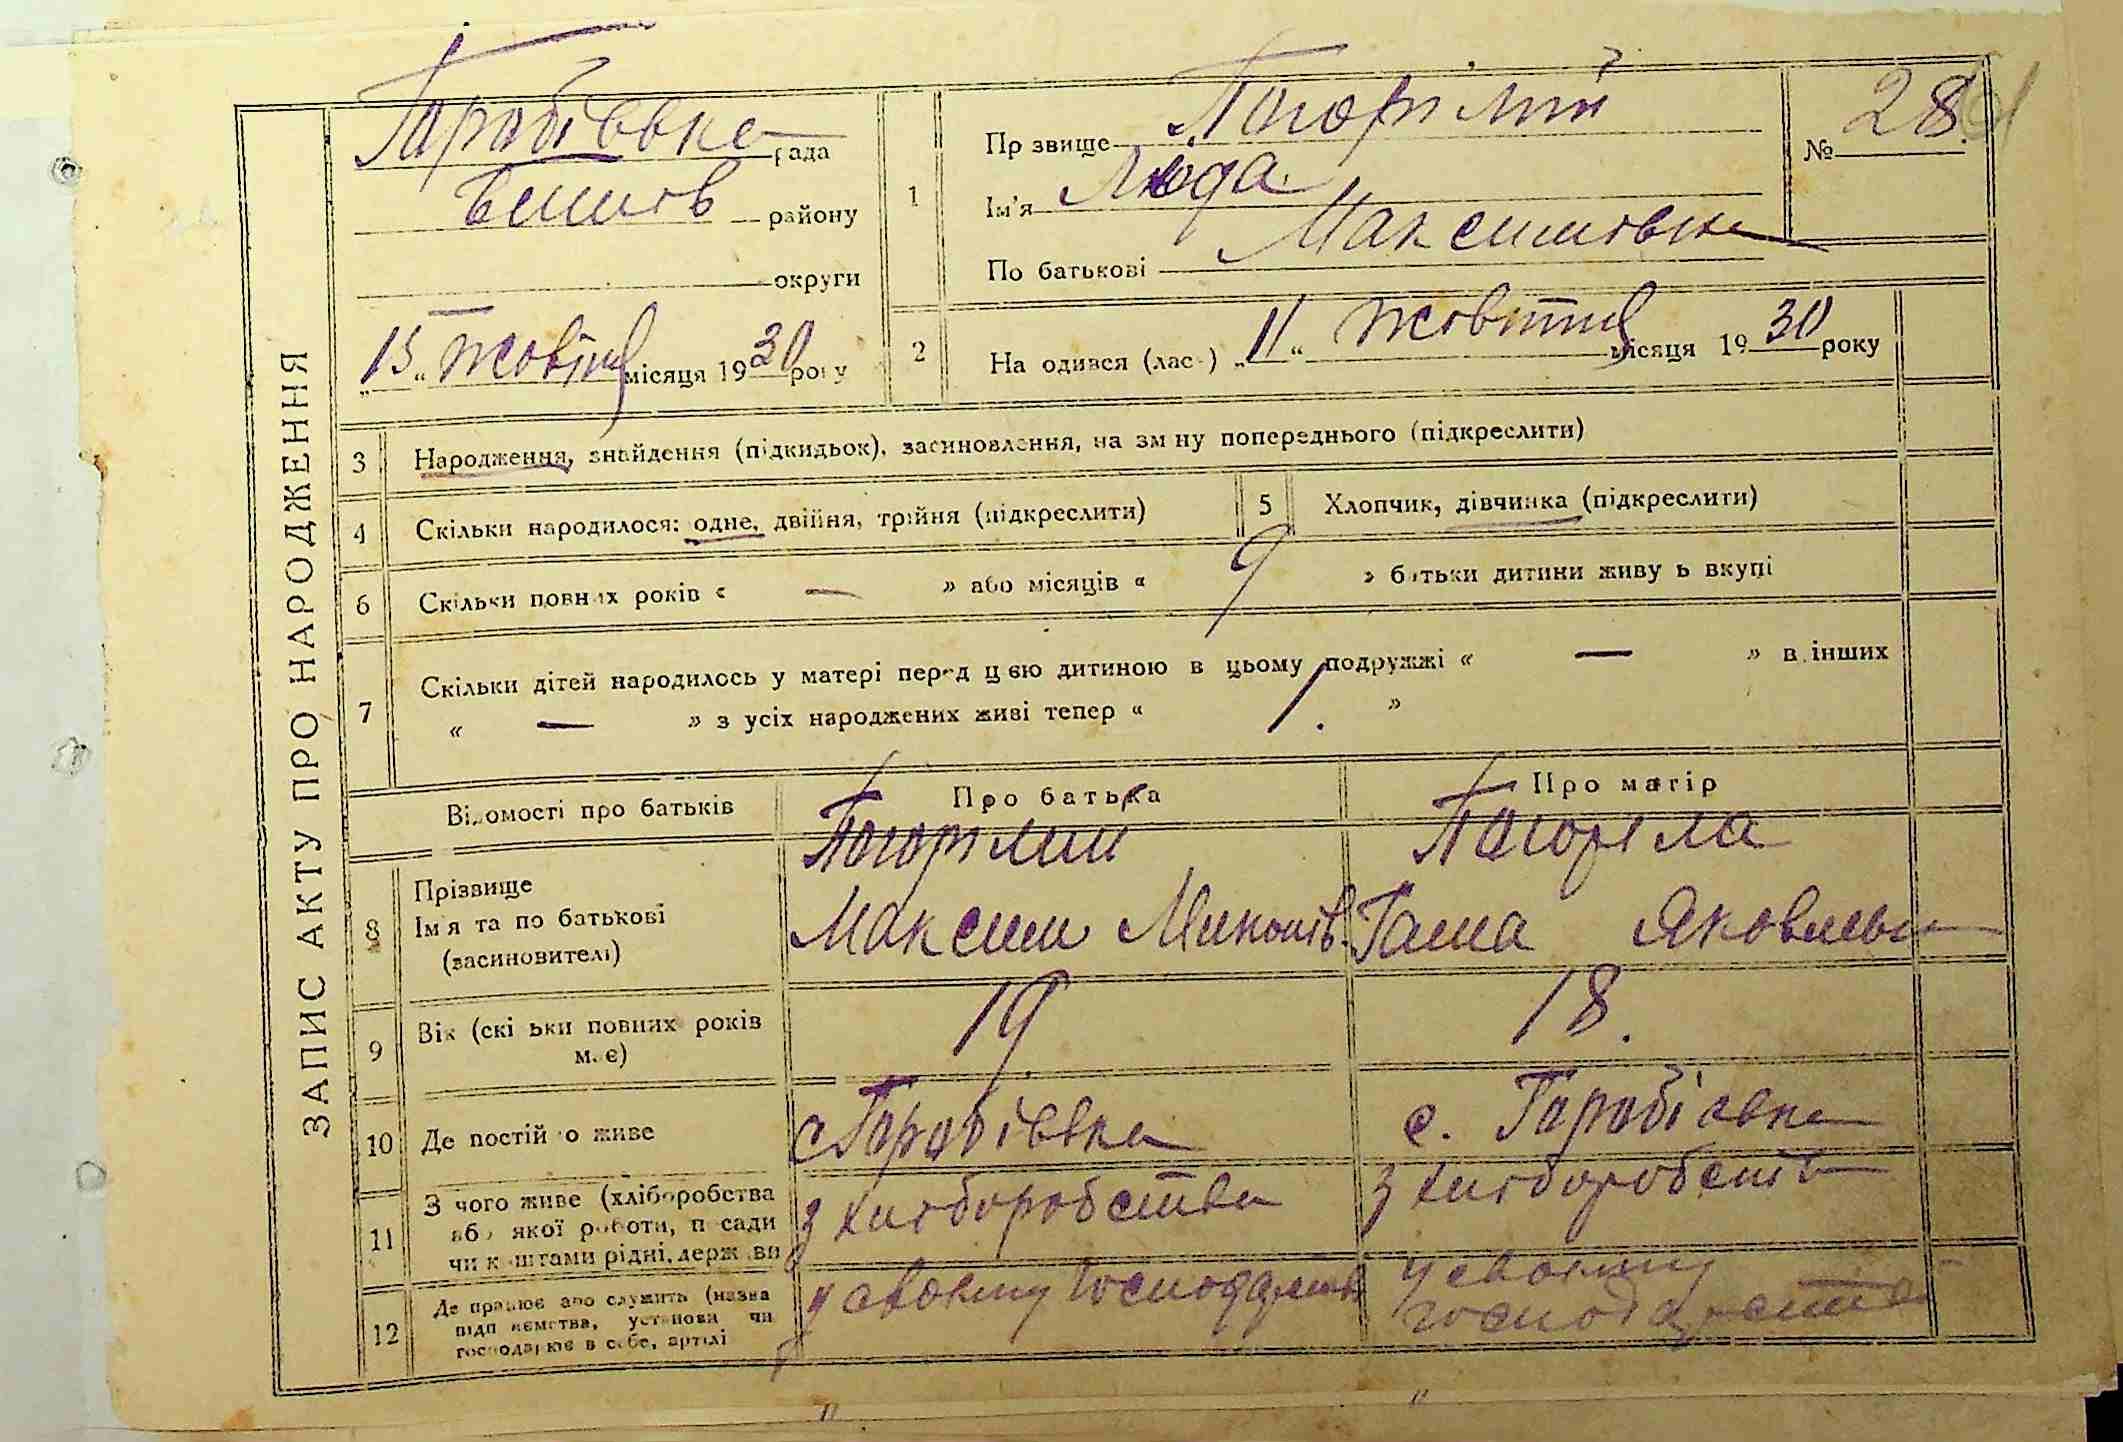 ЗАПИС АКТУ ПРО НАРОДЖЕННЯ
Гаробіевка рада
району
округи
„15“ Жовтня місяця 1930 року
1
Пр звище Погорілий
№ 28.
Ім'я Люда
По батькові Максимовна
2 На одився (лас ) „11“ Жовтня місяця 1930 року
3 Народження, знайдення (підкидьок), засиновлення, на зм ну попереднього (підкреслити)
4 Скільки народилося: одне, двійня, трійня (підкреслити) 5 Хлопчик, дівчинка (підкреслити)
6 Скільки повних років « — » або місяців « 9 » батьки дитини живу ь вкупі
7 Скільки дітей народилось у матері перед цею дитиною в цьому подружжі « — » в інших
« — » з усіх народжених живі тепер « 1. »
Відомості про батьків Про батька Про матір
8 Прізвище Погорілий Погоріла
Ім'я та по батькові Максим Ганна Яковлевна
(засиновителі)
9 Вік (скі ьки повних років 19 18.
м є)
10 Де постій о живе с Гаробіевка с. Гаробіевка
11 З чого живе (хліборобства з хліборобства з хліборобств
або якої роботи, посади
чи коштами рідні, держави
12 Де працює або служить (назва у своему господарстві у своему
підп иємства, установи чи господарстві
господарює в себе, артілі